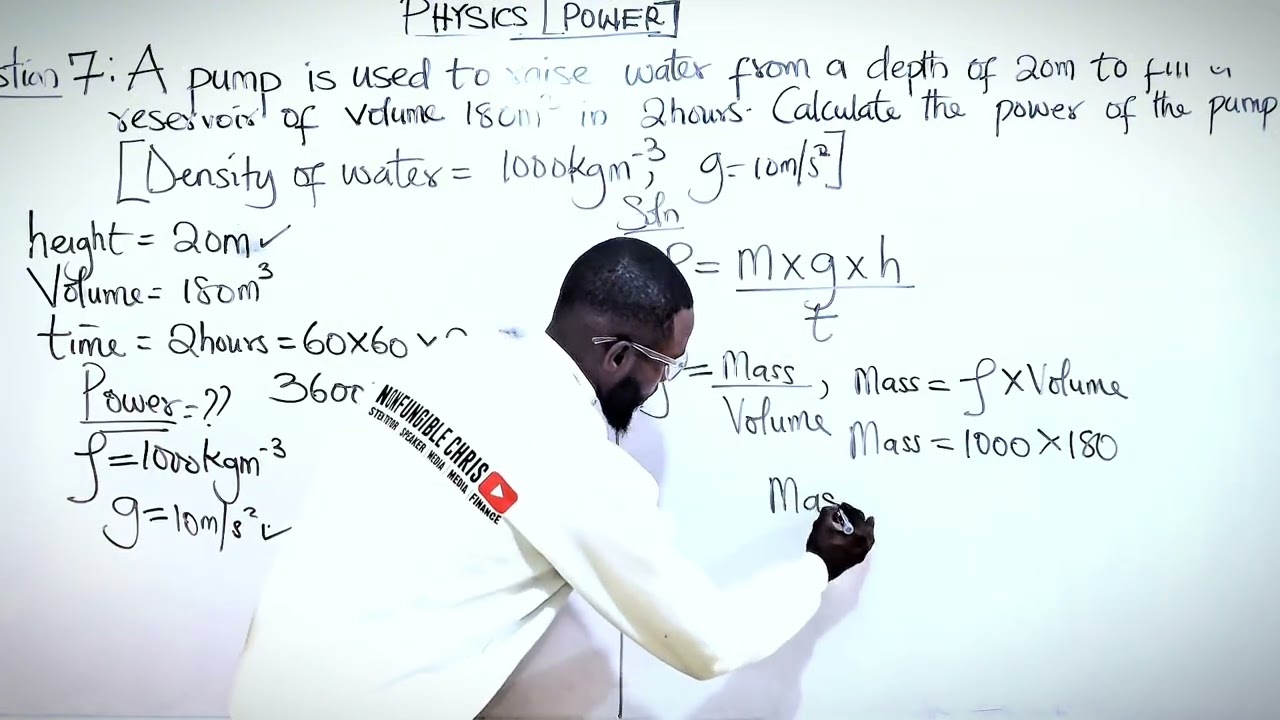 PHYSICS [POWER]
stion 7: A pump is used to raise water from a depth of 20m to fill a
reservoir of volume 180m³ in 2hours. Calculate the power of the pump
[Density of water = 1000kgm⁻³, g = 10m/s²]
height = 20m ✓
Volume = 180m³
time = 2hours = 60×60
Power = ??
360
ρ = 1000kgm⁻³
g = 10m/s² ✓
Soln
= m×g×h
t
= Mass , Mass = ρ × Volume
Volume
Mass = 1000 × 180
Mas
NONFUNGIBLE CHRIS
SPEAKER MEDIA MEDIA FINANCE